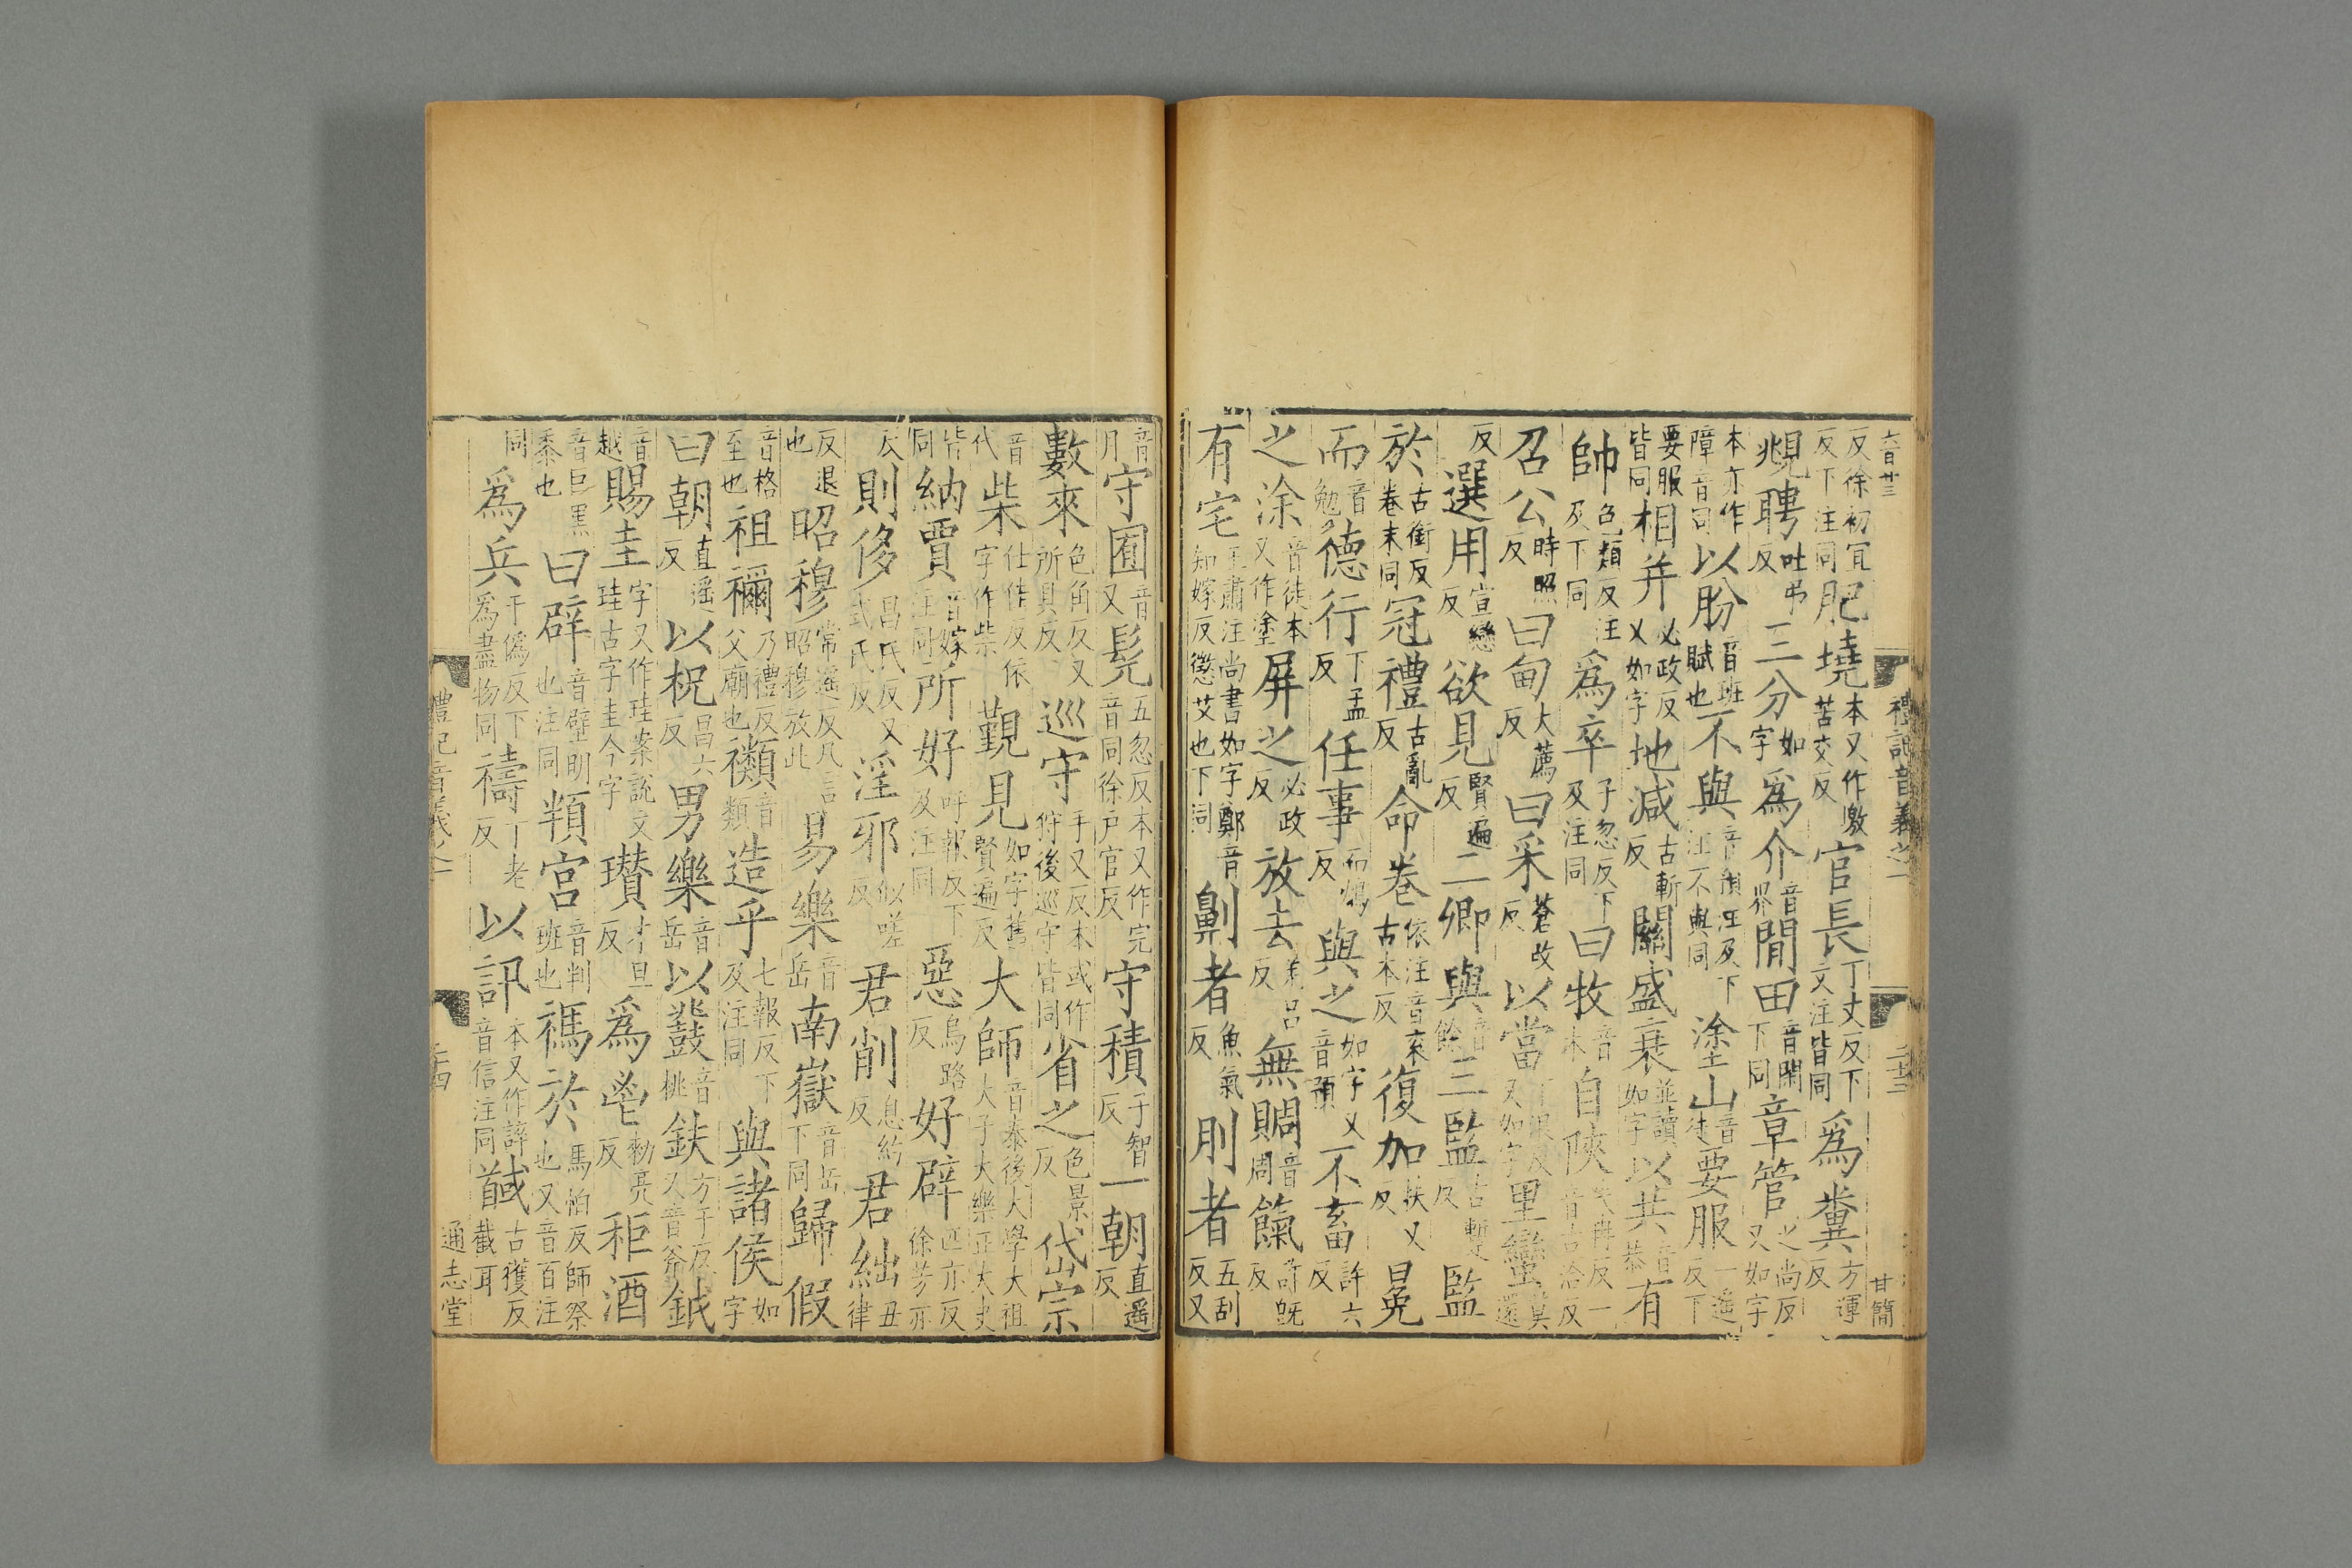 六百廿三
禮記音義之一
二十三
甘簡
反徐初冝反下注同肥墝本又作墽苦交反官長丁丈反下文注皆同爲糞方運反
覜聘吐弔反三分如字爲介音界閒田音閑下同章管之尚反又如字
本亦作障音同以朌音班賦也不與音預注及下注不與同塗山音徒要服一遥反下
要服皆同相并必政反又如字地減古斬反關盛衰並讀如字以共音恭有
帥色類反注及下同爲卒子忽反下及注同曰牧音木自陝失冉反一音古洽反
召公時照反曰甸大薦反曰采蒼改反以當丁浪反又如字里蠻莫還
反選用宣戀反欲見賢遍反二卿與音餘三監古蹔反監
於古銜反卷末同冠禮古亂反命卷依注音衮古本反復加扶又反晃
而音勉德行下孟反任事而鴆反與之如字又音預不畜許六反
之涂音徒本又作塗屏之必政反放去羌呂反無賙音周餼許旣反
有宅王肅注尚書如字鄭音知嫁反懲艾也下同劓者魚氣反刖者五刮反又
音月守囿音又髡五忽反本又作完音同徐戸官反守積子智反一朝直遥反
數來色角反又所具反巡守手又反本或作狩後巡守皆同省之色景反岱宗
音代柴仕佳反依字作祡覲見如字舊賢遍反大師音泰後大學大祖大子大樂正大史
皆同納賈音嫁注同所好呼報反下及注同惡烏路反好辟匹亦反徐芳亦
反則侈昌氏反又式氏反淫邪似嗟反君削息約反君絀丑律
反退也昭穆常遥反凡言昭穆放此易樂音岳南嶽音岳下同歸假
音格至也祖禰乃禮反父廟也禷音類造乎七報反下及注同與諸侯如字
曰朝直遥反以柷昌六反男樂音岳以鼗音桃鈇方于反又音斧鉞
音越賜圭字又作珪案說文珪古字圭今字瓚才旦反爲鬯勑亮反秬酒
音巨黑黍也曰辟音璧明也注同頖宮音判班也禡於馬怕反師祭也又音百注
同爲兵于僞反下爲盡物同禱丁老反以訊本又作誶音信注同馘古獲反截耳
禮記音義之一
二十四
通志堂